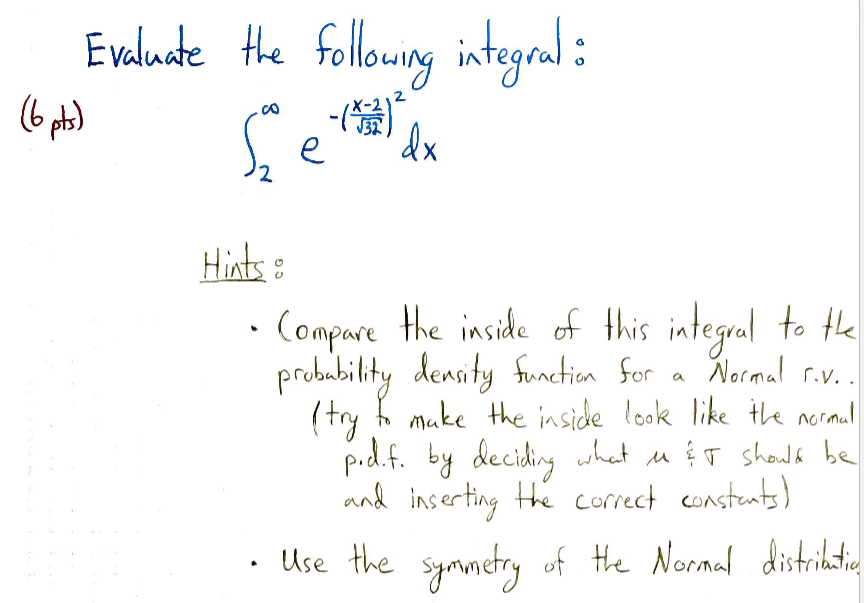 Evaluate the following integral:
(6 pts)
∫₂^∞ e^{-((x-2)/√32)²} dx
Hints:
• Compare the inside of this integral to the
probability density function for a Normal r.v..
(try to make the inside look like the normal
p.d.f. by deciding what μ & σ should be
and inserting the correct constants)
• Use the symmetry of the Normal distributio